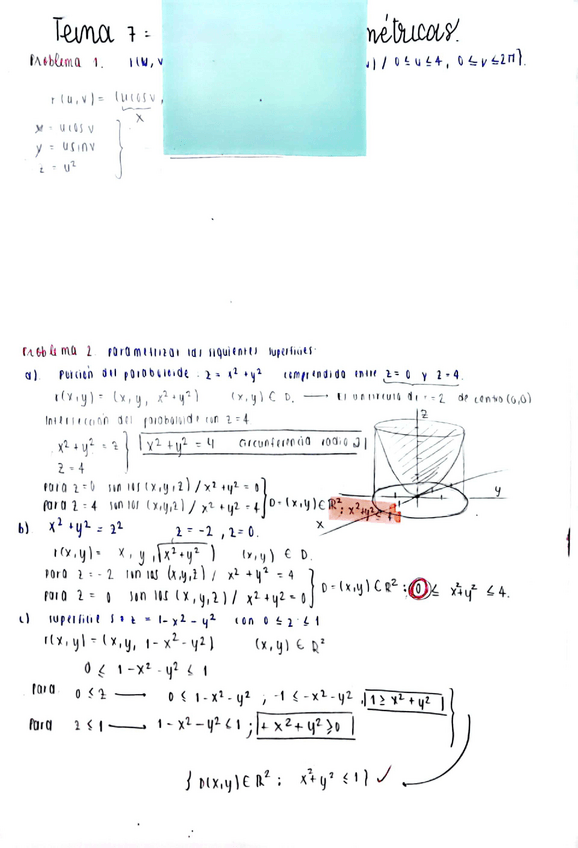 Tema 7 = métricas.
Problema 1. r(u, v ) / 0 ≤ u ≤ 4, 0 ≤ v ≤ 2π}.
r(u,v) = (u cos v,
x
x = u cos v
y = u sin v
z = u²
Problema 2. Parametrizar las siguientes superficies:
a). Porción del paraboloide. z = x² + y² comprendida entre z = 0 y z = 4.
r(x,y) = (x, y, x² + y²) (x,y) ∈ D. → El un círculo de r = 2 de centro (0,0)
Intersección del paraboloide con z = 4
x² + y² = z } x² + y² = 4 circunferencia radio 2
z = 4
z
y
x
para z = 0 son los (x,y,z) / x² + y² = 0
para z = 4 son los (x,y,z) / x² + y² = 4 } D = (x,y) ∈ R²; x² + y² ≤ 4
b) x² + y² = z² z = -2, z = 0.
r(x,y) = x, y, √x² + y² ) (x,y) ∈ D.
para z = -2 son los (x,y,z) / x² + y² = 4
para z = 0 son los (x,y,z) / x² + y² = 0 } D = (x,y) ∈ R²; 0 ≤ x² + y² ≤ 4.
c) superficie S: z = 1 - x² - y² con 0 ≤ z ≤ 1
r(x,y) = (x, y, 1 - x² - y²) (x,y) ∈ R²
0 ≤ 1 - x² - y² ≤ 1
Para 0 ≤ z → 0 ≤ 1 - x² - y² ; -1 ≤ -x² - y², 1 ≥ x² + y²
Para z ≤ 1 → 1 - x² - y² ≤ 1 ; + x² + y² ≥ 0
{ D(x,y) ∈ R²; x² + y² ≤ 1} ✓